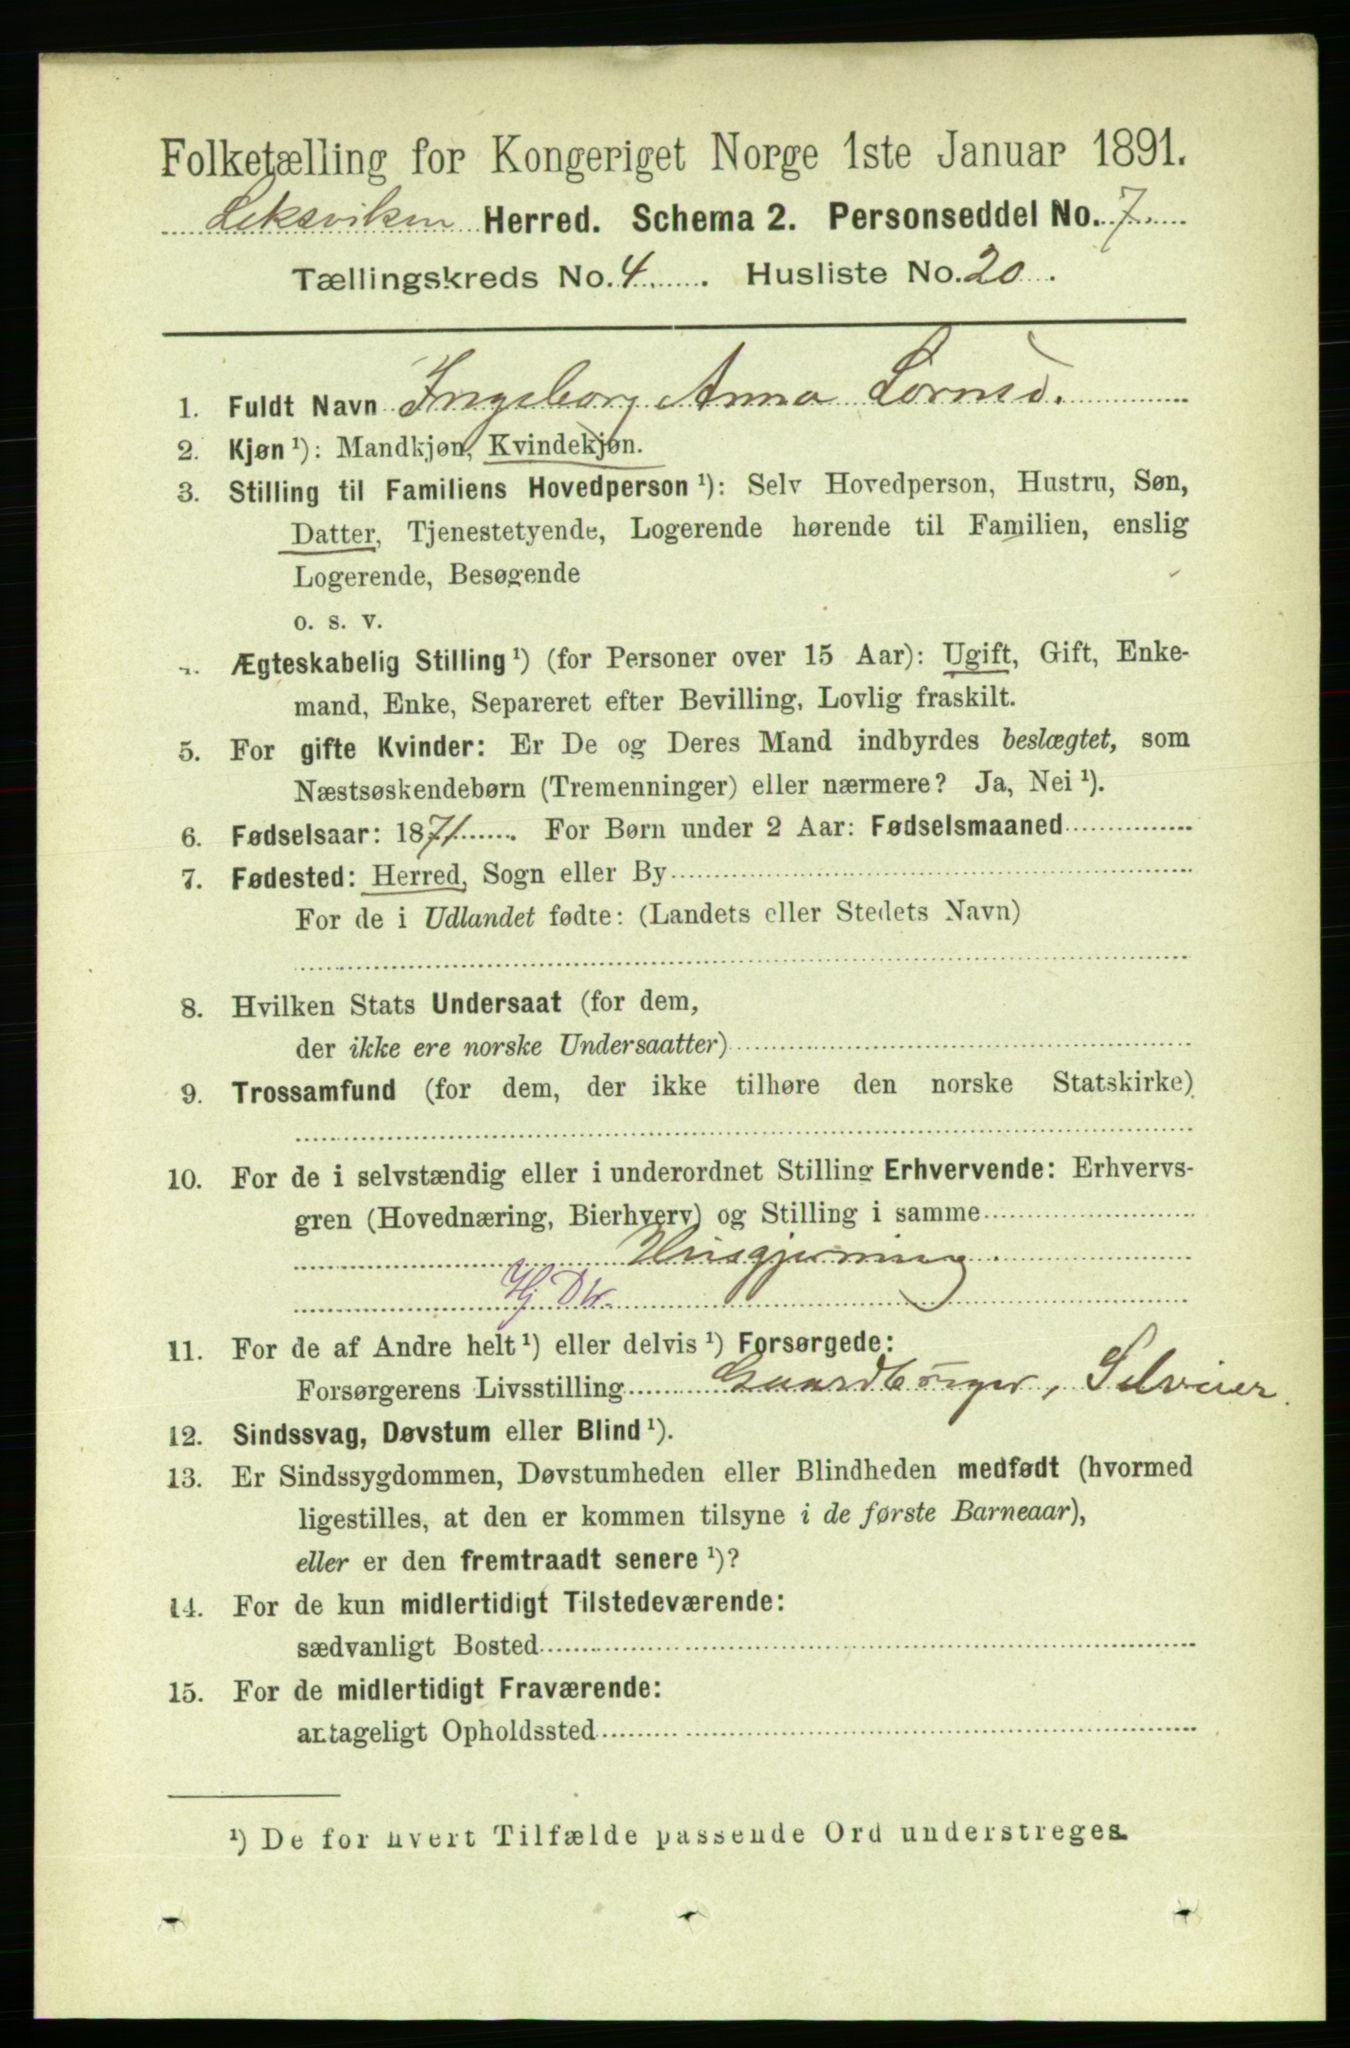 Folketælling for Kongeriget Norge 1ste Januar 1891.
Leksviken Herred. Schema 2. Personseddel No. 7.
Tællingskreds No. 4. Husliste No. 20.
1. Fuldt Navn Ingeborg Anna
2. Kjøn ¹): Mandkjøn, Kvindekjøn.
3. Stilling til Familiens Hovedperson ¹): Selv Hovedperson, Hustru, Søn,
Datter, Tjenestetyende, Logerende hørende til Familien, enslig
Logerende, Besøgende
o. s. v.
Ægteskabelig Stilling ¹) (for Personer over 15 Aar): Ugift, Gift, Enke-
mand, Enke, Separeret efter Bevilling, Lovlig fraskilt.
5. For gifte Kvinder: Er De og Deres Mand indbyrdes beslægtet, som
Næstsøskendebørn (Tremenninger) eller nærmere? Ja, Nei ¹).
6. Fødselsaar: 1871. For Børn under 2 Aar: Fødselsmaaned
7. Fødested: Herred, Sogn eller By
For de i Udlandet fødte: (Landets eller Stedets Navn)
8. Hvilken Stats Undersaat (for dem,
der ikke ere norske Undersaatter)
9. Trossamfund (for dem, der ikke tilhøre den norske Statskirke)
10. For de i selvstændig eller i underordnet Stilling Erhvervende: Erhvervs-
gren (Hovednæring, Bierhverv) og Stilling i samme
Husgjerning
Hj Dtr.
11. For de af Andre helt ¹) eller delvis ¹) Forsørgede:
Forsørgerens Livsstilling Gaardbruger, Selveier
12. Sindssvag, Døvstum eller Blind ¹).
13. Er Sindssygdommen, Døvstumheden eller Blindheden medfødt (hvormed
ligestilles, at den er kommen tilsyne i de første Barneaar),
eller er den fremtraadt senere ¹)?
14. For de kun midlertidigt Tilstedeværende:
sædvanligt Bosted
15. For de midlertidigt Fraværende:
antageligt Opholdssted
¹) De for hvert Tilfælde passende Ord understreges.